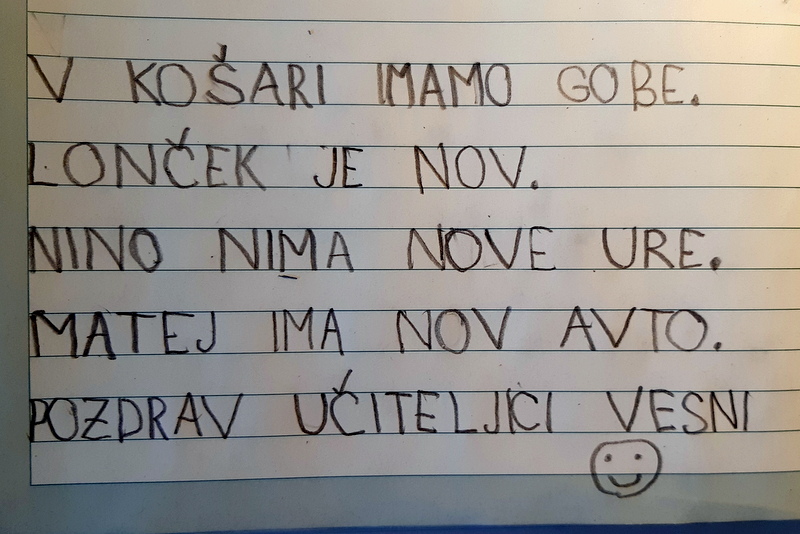 V KOŠARI IMAMO GOBE.
LONČEK JE NOV.
NINO NIMA NOVE URE.
MATEJ IMA NOV AVTO.
POZDRAV UČITELJICI VESNI